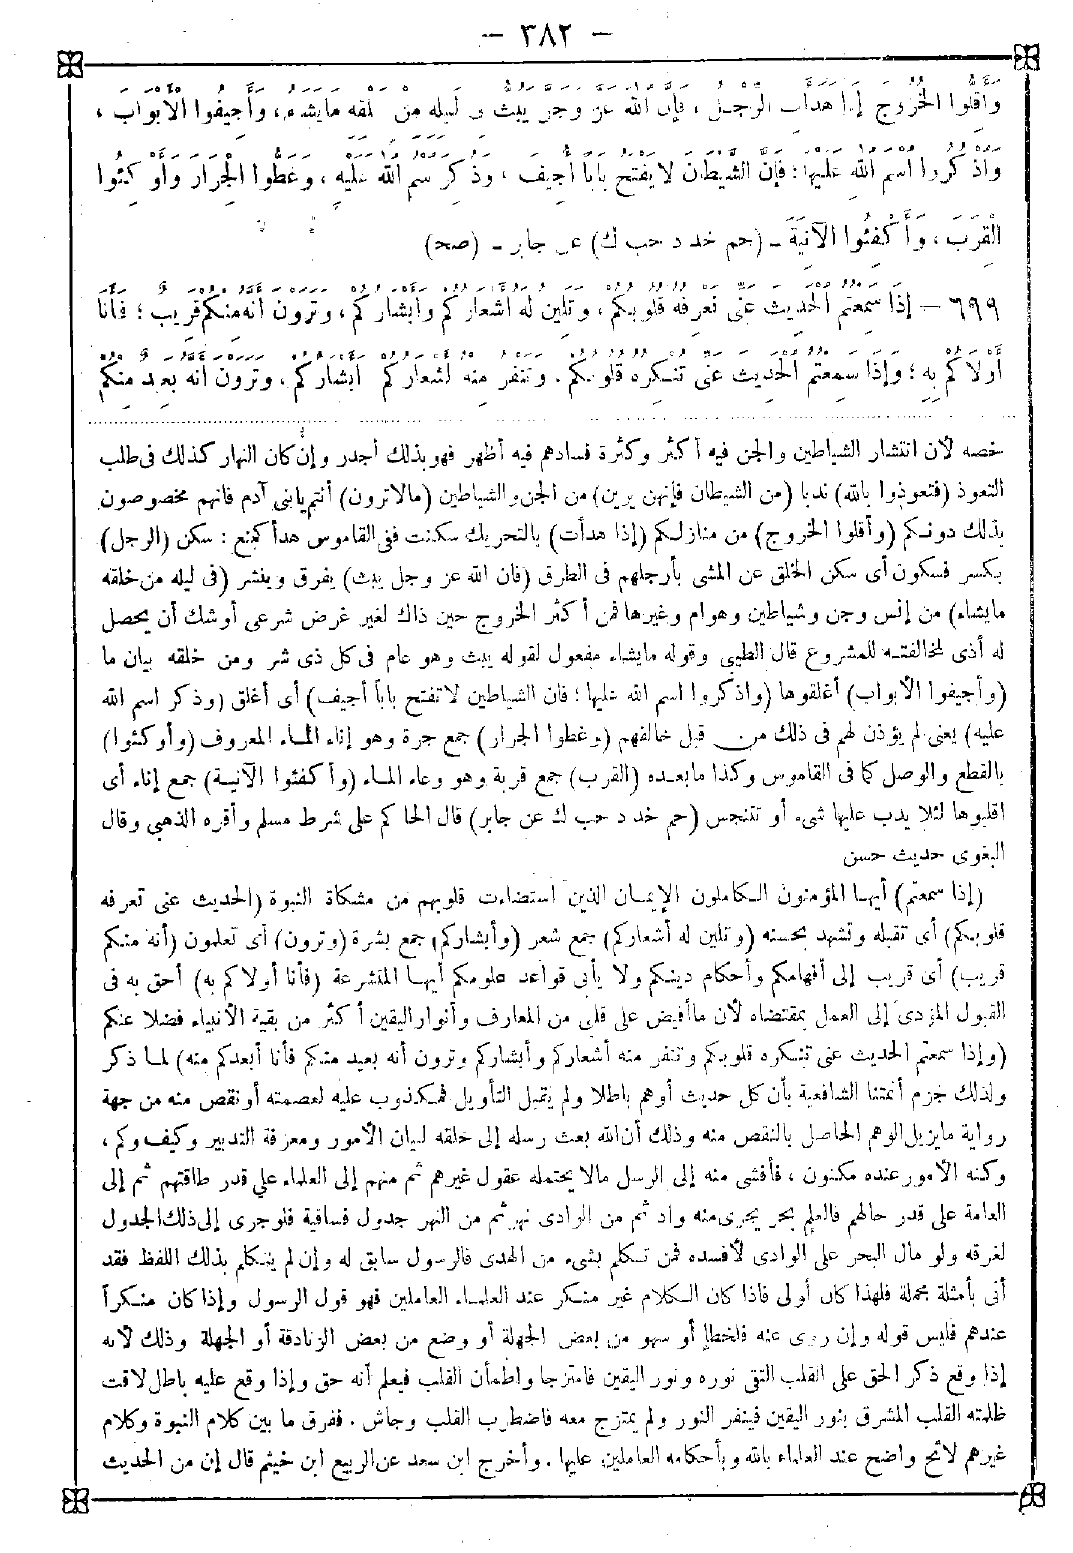 — ٣٨٢ —
وَأَقِلُّوا الْخُرُوجَ إِذَا هَدَأَتِ الرِّجْلُ ، فَإِنَّ اللهَ عَزَّ وَجَلَّ يَبُثُّ فِي لَيْلِهِ مِنْ خَلْقِهِ مَا يَشَاءُ، وَأَجِيفُوا الْأَبْوَابَ ،
وَاذْكُرُوا اسْمَ اللهِ عَلَيْهَا؛ فَإِنَّ الشَّيْطَانَ لَا يَفْتَحُ بَاباً أُجِيفَ ، وَذُكِرَ اسْمُ اللهِ عَلَيْهِ ، وَغَطُّوا الْجِرَارَ وَأَوْكِئُوا
الْقِرَبَ ، وَأَكْفِئُوا الْآنِيَةَ ـ (حم خد د حب ك) عن جابر ـ (صح)
٦٩٩ – إِذَا سَمِعْتُمُ الْحَدِيثَ عَنِّي تَعْرِفُهُ قُلُوبُكُمْ ، وَتَلِينُ لَهُ أَشْعَارُكُمْ وَأَبْشَارُكُمْ، وَتَرَوْنَ أَنَّهُ مِنْكُمْ قَرِيبٌ ؛ فَأَنَا
أَوْلَاكُمْ بِهِ ؛ وَإِذَا سَمِعْتُمُ الْحَدِيثَ عَنِّي تُنْكِرُهُ قُلُوبُكُمْ . وَتَنْفِرُ مِنْهُ أَشْعَارُكُمْ وَأَبْشَارُكُمْ، وَتَرَوْنَ أَنَّهُ بَعِيدٌ مِنْكُمْ
خصه لأن انتشار الشياطين والجن فيه أكثر وكثرة فسادهم فيه أظهر فهو بذلك أجدر وإن كان النهار كذلك فى طلب
التعوذ (فتعوذوا بالله) ندبا (من الشيطان فإنهن يرين) من الجن والشياطين (مالا ترون) أنتم يابنى آدم فانهم مخصوصون
بذلك دونكم (وأقلوا الخروج) من منازلكم (إذا هدأت) بالتحريك سكنت ففى القاموس هدأ كمنع : سكن (الرجل)
بكسر فسكون أى سكن الخلق عن المشى بأرجلهم فى الطرق (فان الله عز وجل يبث) يفرق وينشر (فى ليله من خلقه
مايشاء) من إنس وجن وشياطين وهوام وغيرها فمن أكثر الخروج حين ذاك لغير غرض شرعى أوشك أن يحصل
له أذى لمخالفته للمشروع قال الطيبى وقوله مايشاء مفعول لقوله يبث وهو عام فى كل ذى شر ومن خلقه بيان ما
(وأجيفوا الأبواب) أغلقوها (واذكروا اسم الله عليها ؛ فان الشياطين لا تفتح باباً أجيف) أى أغلق (وذكر اسم الله
عليه) يعنى لم يؤذن لهم فى ذلك من قبل خالقهم (وغطوا الجرار) جمع جرة وهو إناء الماء المعروف (وأوكئوا)
بالقطع والوصل كما فى القاموس وكذا مابعده (القرب) جمع قربة وهو وعاء الماء (وأكفئوا الآنية) جمع إناء أى
اقلبوها لئلا يدب عليها شىء أو تتنجس (حم خد د حب ك عن جابر) قال الحاكم على شرط مسلم وأقره الذهبي وقال
البغوى حديث حسن
(إذا سمعتم) أيها المؤمنون الكاملون الإيمان الذين استضاءت قلوبهم من مشكاة النبوة (الحديث عنى تعرفه
قلوبكم) أى تقبله وتشهد بحسنه (وتلين له أشعاركم) جمع شعر (وأبشاركم) جمع بشرة (وترون) أى تعلمون (أنه منكم
قريب) أى قريب إلى أفهامكم وأحكام دينكم ولا يأبى قواعد علومكم أيها المتشرعة (فأنا أولاكم به) أحق به فى
القبول المؤدى إلى العمل بمقتضاه لأن ماأفيض على قلبى من المعارف وأنوار اليقين أكثر من بقية الأنبياء فضلا عنكم
(وإذا سمعتم الحديث عنى تنكره قلوبكم وتنفر منه أشعاركم وأبشاركم وترون أنه بعيد منكم فأنا أبعدكم منه) لما ذكر
ولذلك جزم أئمتنا الشافعية بأن كل حديث أوهم باطلا ولم يقبل التأويل فمكذوب عليه لعصمته أو نقص منه من جهة
رواية مايزيل الوهم الحاصل بالنقص منه وذلك أن الله بعث رسله إلى خلقه لبيان الأمور ومعرفة التدبير وكيف وكم ،
وكنه الأمور عنده مكنون ، فأفشى منه إلى الرسل مالا يحتمله عقول غيرهم ثم منهم إلى العلماء على قدر طاقتهم ثم إلى
العامة على قدر حالهم فالعلم بحر يجرى منه واد ثم من الوادى نهر ثم من النهر جدول فساقية فلو جرى إلى ذلك الجدول
لغرقه ولو مال البحر على الوادى لأفسده فمن تكلم بشىء من الهدى فالرسول سابق له وإن لم يتكلم بذلك اللفظ فقد
أتى بأمثلة مجملة فلهذا كان أولى فاذا كان الكلام غير منكر عند العلماء العاملين فهو قول الرسول وإذا كان منكراً
عندهم فليس قوله وإن روى عنه فلخطإ أو سهو من بعض الجهلة أو وضع من بعض الزنادقة أو الجهلة وذلك لأنه
إذا وقع ذكر الحق على القلب التقى نوره ونور اليقين فامتزجا واطمأن القلب فيعلم أنه حق وإذا وقع عليه باطل لاقت
ظلمته القلب المشرق بنور اليقين فينفر النور ولم يمتزج معه فاضطرب القلب وجاش . ففرق ما بين كلام النبوة وكلام
غيرهم لائح واضح عند العلماء بالله وبأحكامه العاملين عليها . وأخرج ابن سعد عن الربيع ابن خيثم قال إن من الحديث